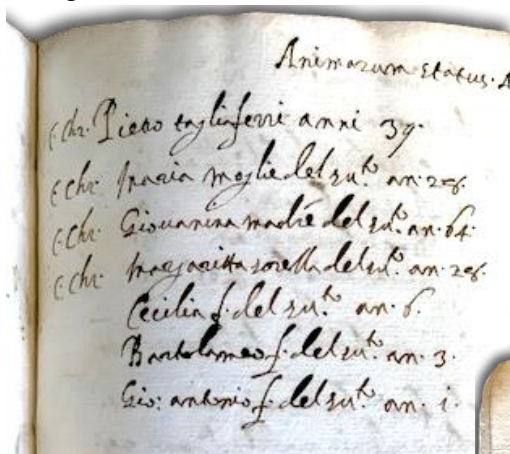 Animarum Status. A
C. Chr. Pietro tagliaferri anni 39.
C. Chr. Maria moglie del su.to an. 28.
C. Chr. Giovanina madre del su.to an. 64.
C. Chr. Margaritta sorella del su.to an. 28.
Cecilia f. del su.to an. 6.
Bartolameo f. del su.to an. 3.
Gio: antonio f. del su.to an. 1.